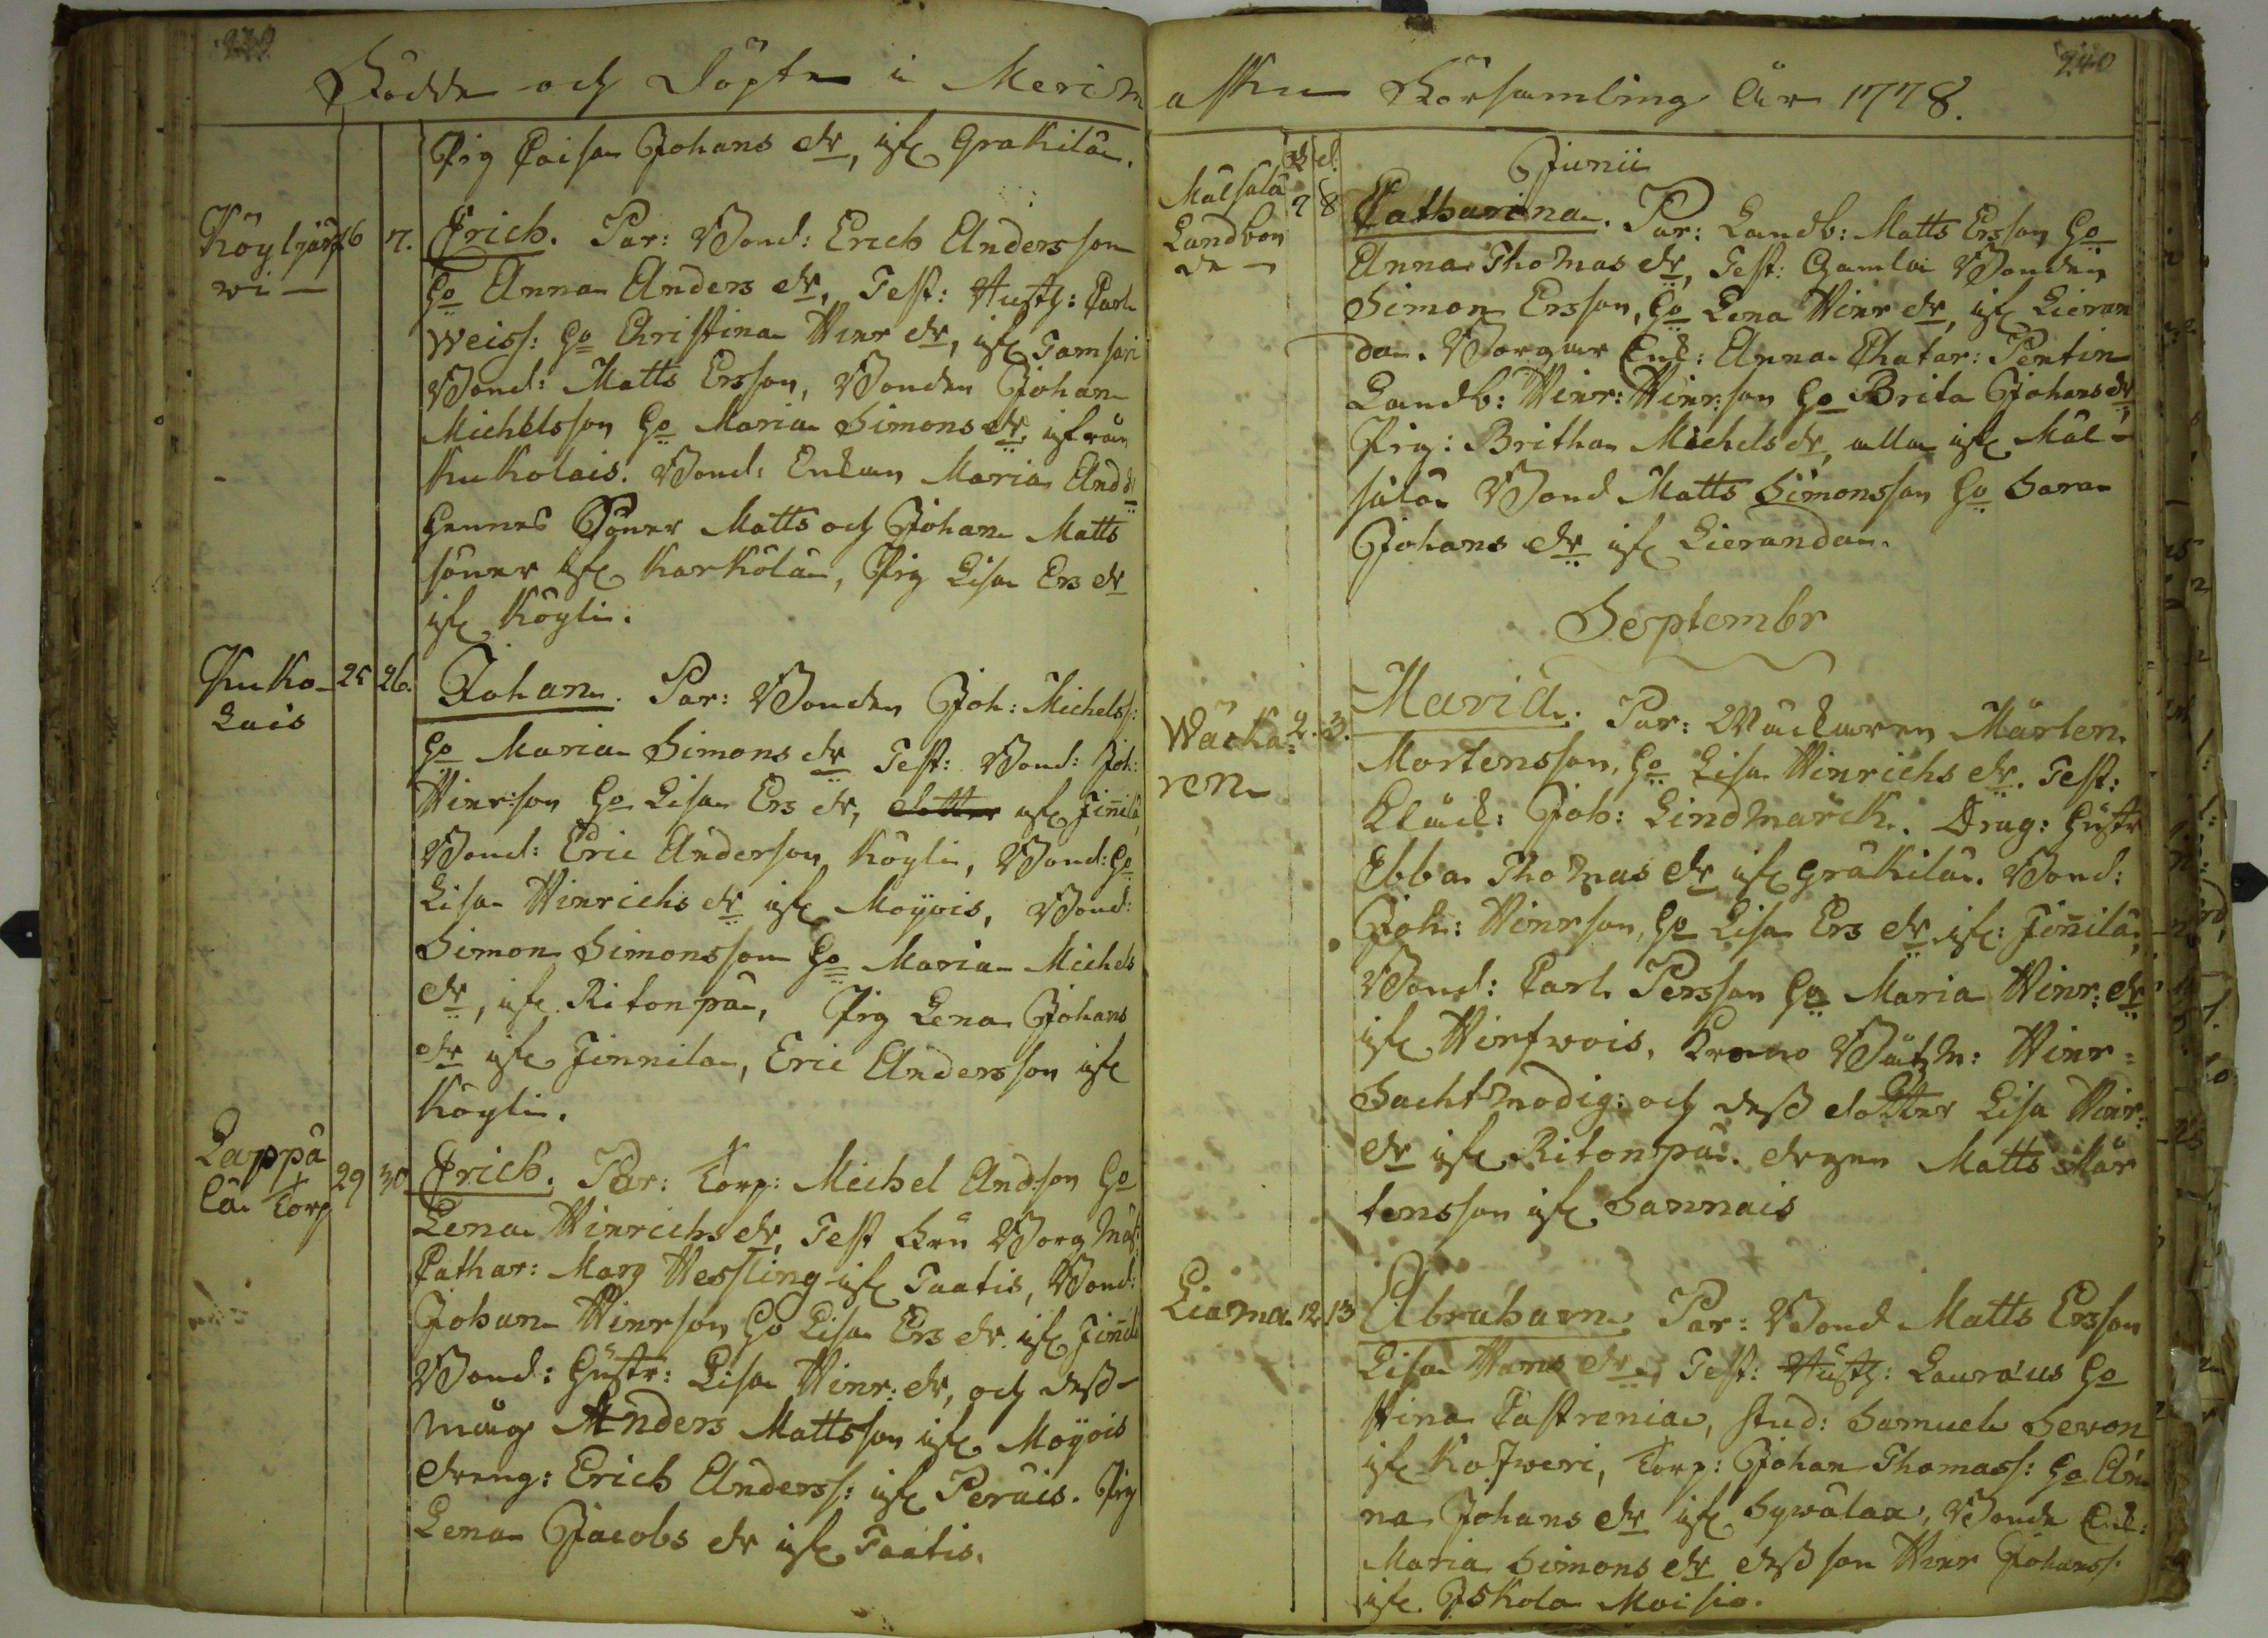 239.
Födde och Döpte i Merim
Pig Caisa Johans dr, ifr Grakila.
Köyljärf
wi —
6 7. Erich. Par: Bond: Erich Andersson
Ho Anna Anders dr, Test: Hustg: Carl
Weiss: Ho Christina Hinr dr, ifr Tamsari
Bond: Matts Ersson, Bonden Johan
Michelsson Ho Maria Simons dr ifrån
Kukolais. Bond: Enkan Maria And dr
hennes Söner Matts och Johan Matts
söner ifr Karkola, Pig Lisa Ers dr
ifr Köyli.
Kuko-
Lais
25 26. Johan. Par: Bonden Joh: Michelss:
Ho Maria Simons dr Test: Bond: Joh:
Hinrson Ho Lisa Ers dr, dotter ifr Jiñila,
Bond: Eric Anderson Köyli, Bond: Ho
Lisa Hinrichs dr ifr Moÿois, Bond:
Simon Simonsson Ho Maria Michels
dr, ifr Ritonpä, Pig Lena Johans
dr ifr Jinnila, Eric Andersson ifr
Köyli.
Lappa
la Torp
29 30 Erich. Par: Torp: Michel Andson Ho
Lena Hinrichs dr, Test Fru Borgmäs:
Cathar: Marg Wessling ifr Taatis, Bond:
Johan Hinrson Ho Lisa Ers dr ifr Jiñila
Bond: Hustr: Lisa Hinr: dr, och dess
måg Anders Mattsson ifr Moÿois
dreng: Erich Anderss: ifr Peräis. Pig
Lena Jacobs dr ifr Taatis.
240
asku Församling År 1778.
Junii
Målsala
Landbon
de —
F. d.
7 8 Catharina. Par: Landb: Matts Ersson Ho
Anna Thomas dr, Test: Gamla Bonden
Simon Ersson, Ho Lena Hinr dr, ifr Lieran
da. Borgar Enk: Anna Chatar: Pentin
Landb: Hinr: Hinr:son Ho Brita Johans dr
Pig: Britha Michels dr, alla ifr Mål-
sala Bond Matts Simonsson Ho Sara
Johans dr ifr Lieranda.
Septembr
Wäcka-
ren
2. 3. Maria. Par: Wäckaren Mårten
Mortensson, Ho Lisa Hinrichs dr. Test:
Kläck: Joh: Lindmarck. Drag: Hustr
Ebba Thomas dr ifr Gräkila. Bond:
Joh: Hinrson, Ho Lisa Ers dr ifr: Jiñila,
Bond: Carl Persson Ho Maria Hinr: dr
ifr Hirfwois, Krono Båtzm: Hinr:
Sachtmodig: och dess dotter Lisa Hinr:
dr ifr Ritonpä. drgen Matts Mår
tensson ifr Sannais
Liama 12 13 Abraham. Par: Bond Matts Ersson
Lisa Hans dr, Test: Hustg: Lauræus Ho
Stina Castrenia, stud: Samuel Sevon
ifr Kojweri, Torp: Johan Thomass: Ho An
na Johans dr ifr Sywälax, Bonde Enk:
Maria Simons dr dess son Hinr Johanss:
ifr Iskola Moisio.